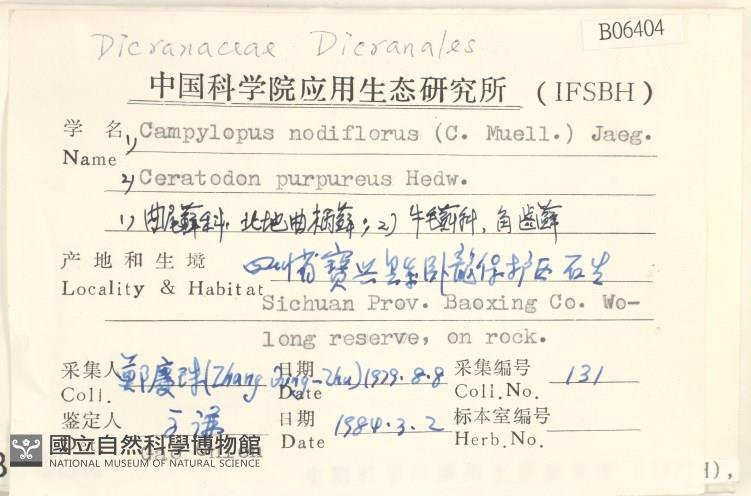 B06404
Dicranaceae Dicranales
中国科学院应用生态研究所 (IFSBH)
学名 1) Campylopus nodiflorus (C. Muell.) Jaeg.
Name
2) Ceratodon purpureus Hedw.
1) 曲尾藓科, 北地曲柄藓; 2) 牛毛藓科, 角齿藓
产地和生境 四川省寶兴县卧龍保护区石生
Locality & Habitat
Sichuan Prov. Baoxing Co. Wo-
long reserve, on rock.
采集人 鄭慶珠 (Zhang Qing-Zhu) 日期 1979.8.8 采集编号 131
Coll. Date Coll.No.
鉴定人 日期 1984.3.2 标本室编号
Date Herb.No.
國立自然科學博物館
NATIONAL MUSEUM OF NATURAL SCIENCE